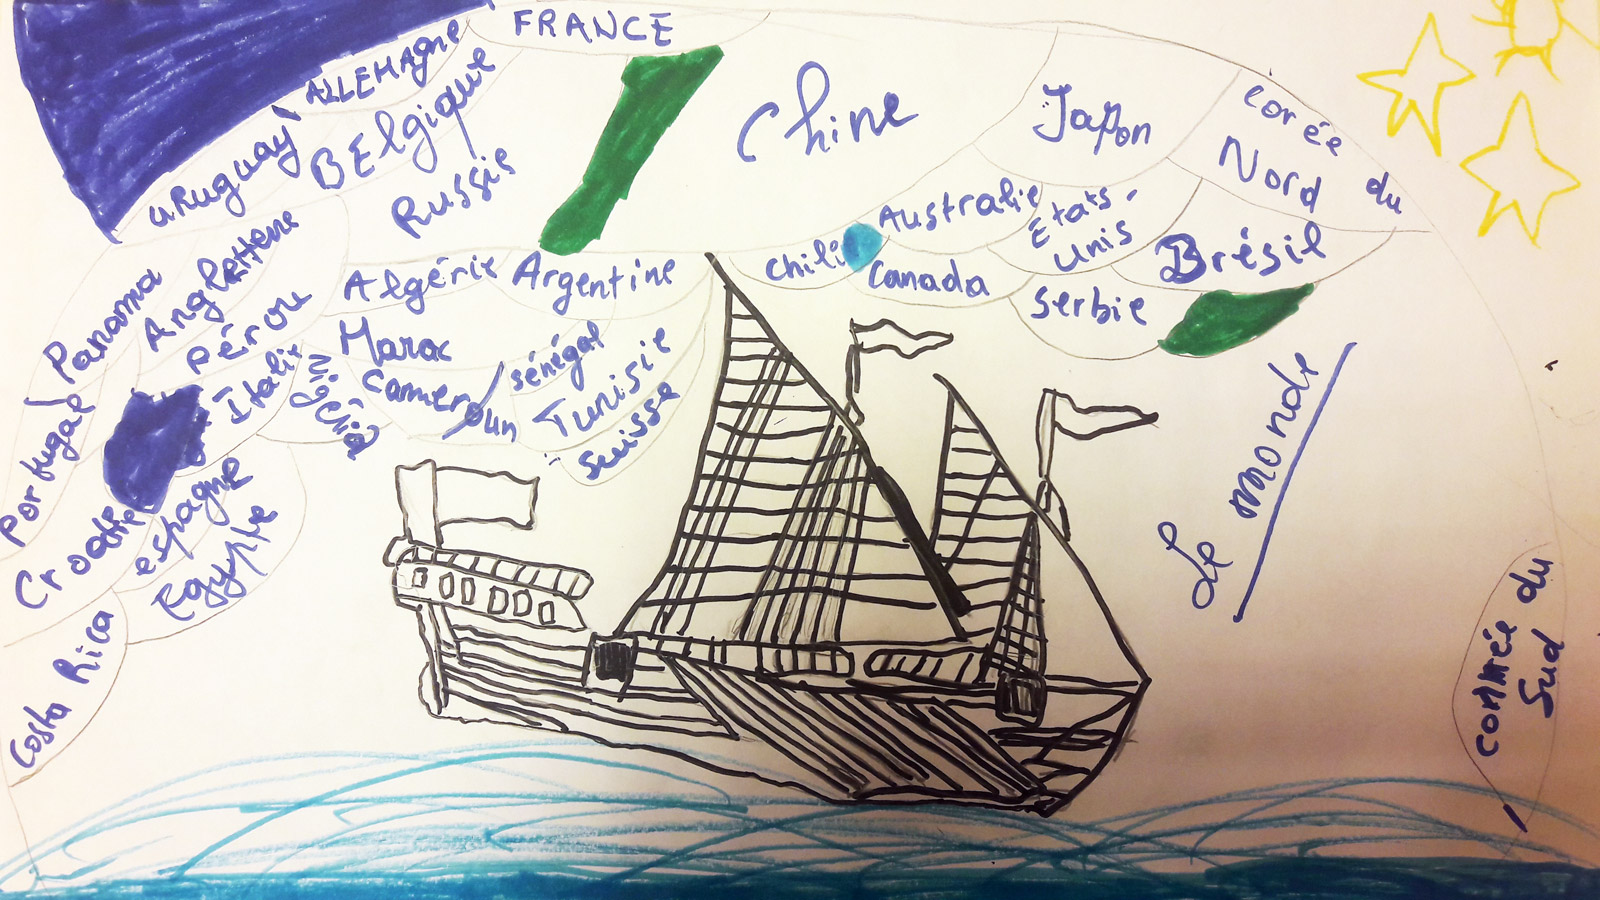 FRANCE
ALLEMAGNE
URuguay
BElgique
Russie
Chine
Japon
corée
du
Nord
Australie
États-
Unis
Brésil
chili
Canada
Serbie
Panama
Angleterre
Pérou
Algérie
Argentine
Maroc
Cameroun
sénégal
Tunisie
Suisse
Italie
Nigéria
Portugal
Croatie
espagne
Egypte
Costa Rica
Le monde
commée du
Sud